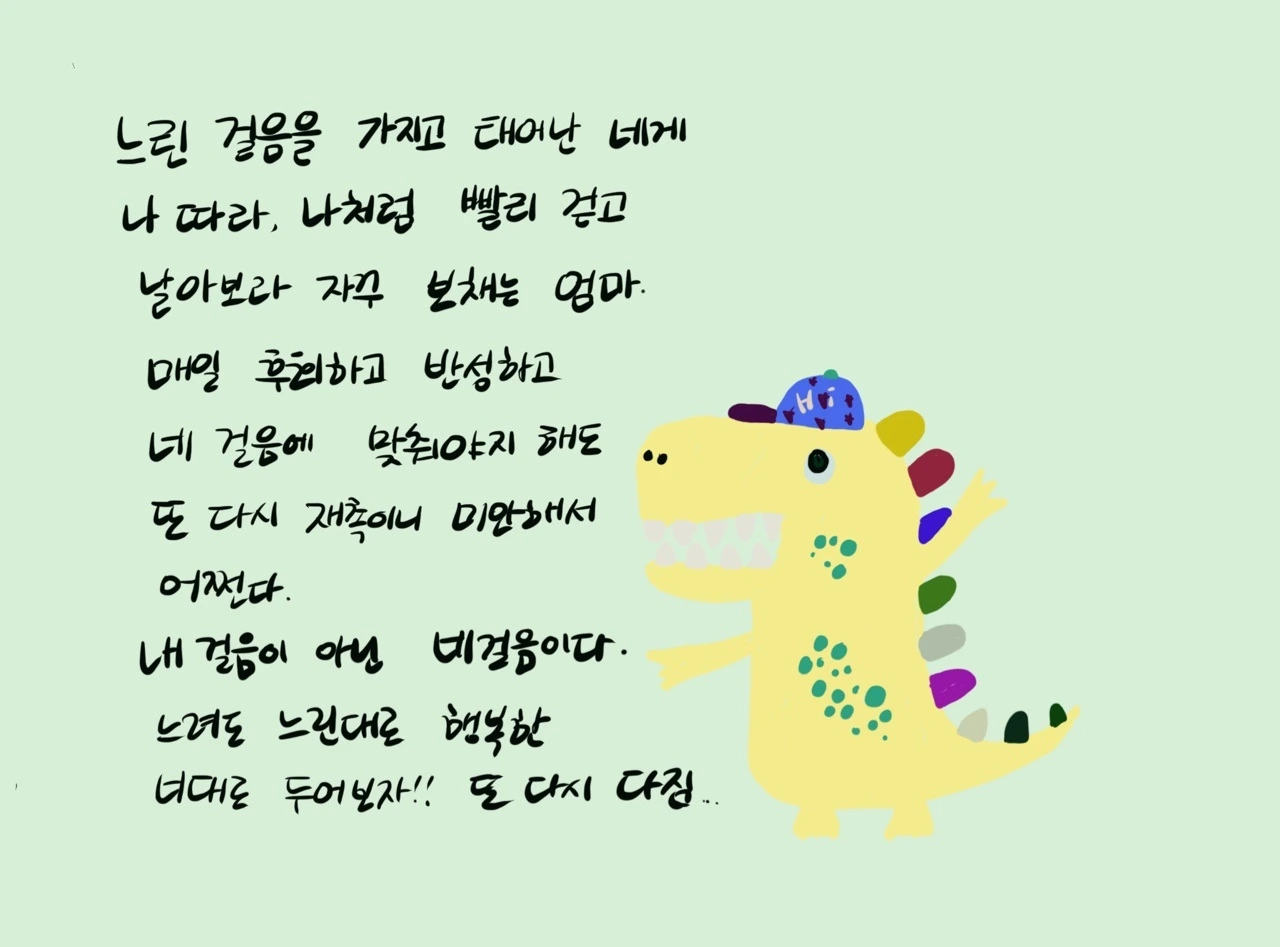 느린 걸음을 가지고 태어난 네게
나 따라, 나처럼 빨리 걷고
날아보라 자꾸 보채는 엄마.
매일 후회하고 반성하고
네 걸음에 맞춰야지 해도
또 다시 재촉이니 미안해서
어쩐다.
내 걸음이 아닌 네걸음이다.
느려도 느린대로 행복한
너대로 두어보자!! 또 다시 다짐...
Hi